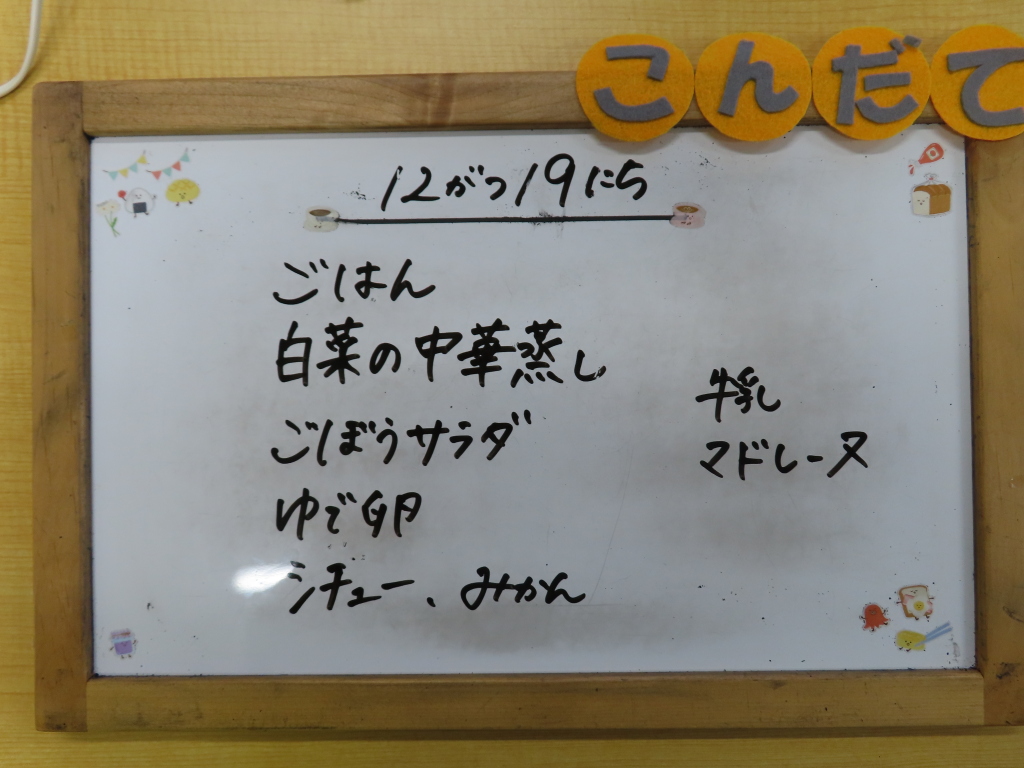 こんだて
12がつ19にち
ごはん
白菜の中華蒸し
ごぼうサラダ
ゆで卵
シチュー、みかん
牛乳
マドレーヌ